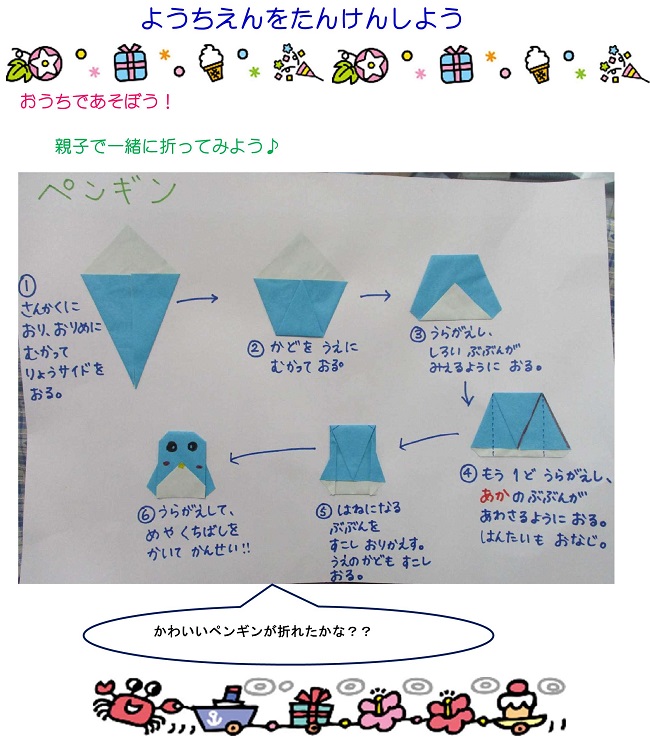 ようちえんをたんけんしよう
おうちであそぼう！
親子で一緒に折ってみよう♪
ペンギン
①
さんかくに
おり、おりめに
むかって
りょうサイドを
おる。
② かどを うえに
むかって おる。
③ うらがえし、
しろい ぶぶんが
みえるように おる。
④ もう 1ど うらがえし、
あかのぶぶんが
あわさるように おる。
はんたいも おなじ。
⑤ はねになる
ぶぶんを
すこし おりかえす。
うえのかども すこし
おる。
⑥ うらがえして、
めや くちばしを
かいて かんせい!!
かわいいペンギンが折れたかな？？